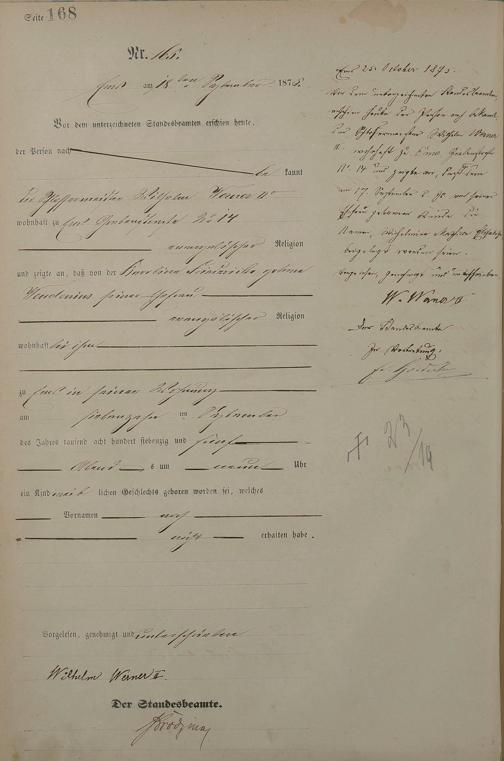 Seite 168
Nr. 168.
Ems am 18ten September 1875.
Vor dem unterzeichneten Standesbeamten erschien heute,
der Person nach
be kannt
Wilhelm Werner IIr
wohnhaft zu Ems Grabenstraße No 14
evangelischer Religion
und zeigte an, daß von der Karoline geborene
seiner Ehefrau
evangelischer Religion
wohnhaft bei ihm
zu Ems in seiner Wohnung
am siebenzehn ten September
des Jahres tausend acht hundert siebenzig und fünf
Abend s um neun Uhr
ein Kind weib lichen Geschlechts geboren worden sei, welches
Vornamen noch
nicht erhalten habe.
Vorgelesen, genehmigt und unterschrieben
Wilhelm Werner II.
Der Standesbeamte.
Ems 25. October 1875.
Vor dem unterzeichneten Standesbeamten
erschien heute der Person nach bekannt
Wilhelm Werner
II. wohnhaft zu Ems, Grabenstraße
No 14 und zeigte an, daß dem
am 17. September d. Js. von seiner
Ehefrau geborenen Kinde die
Namen, Wilhelmine
beigelegt worden seien.
Vorgelesen, genehmigt und unterschrieben
W. Werner II
Der Standesbeamte
In Vertretung.
23/19